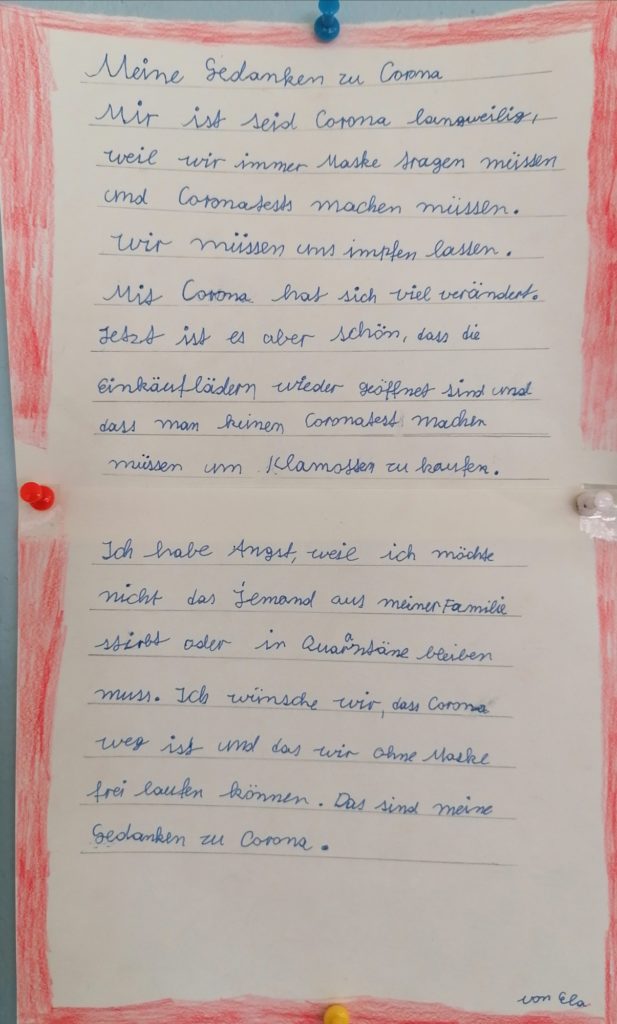 Meine Gedanken zu Corona
Mir ist seid Corona langweilig,
weil wir immer Maske tragen müssen
und Coronatests machen müssen.
Wir müssen uns impfen lassen.
Mit Corona hat sich viel verändert.
Jetzt ist es aber schön, dass die
Einkäuflädern wieder geöffnet sind und
dass man keinen Coronatest machen
müssen um Klamotten zu kaufen.
Ich habe Angst, weil ich möchte
nicht das Jemand aus meiner Familie
stirbt oder in Quarantäne bleiben
muss. Ich wünsche wir, dass Corona
weg ist und das wir ohne Maske
frei laufen können. Das sind meine
Gedanken zu Corona.
von Ela